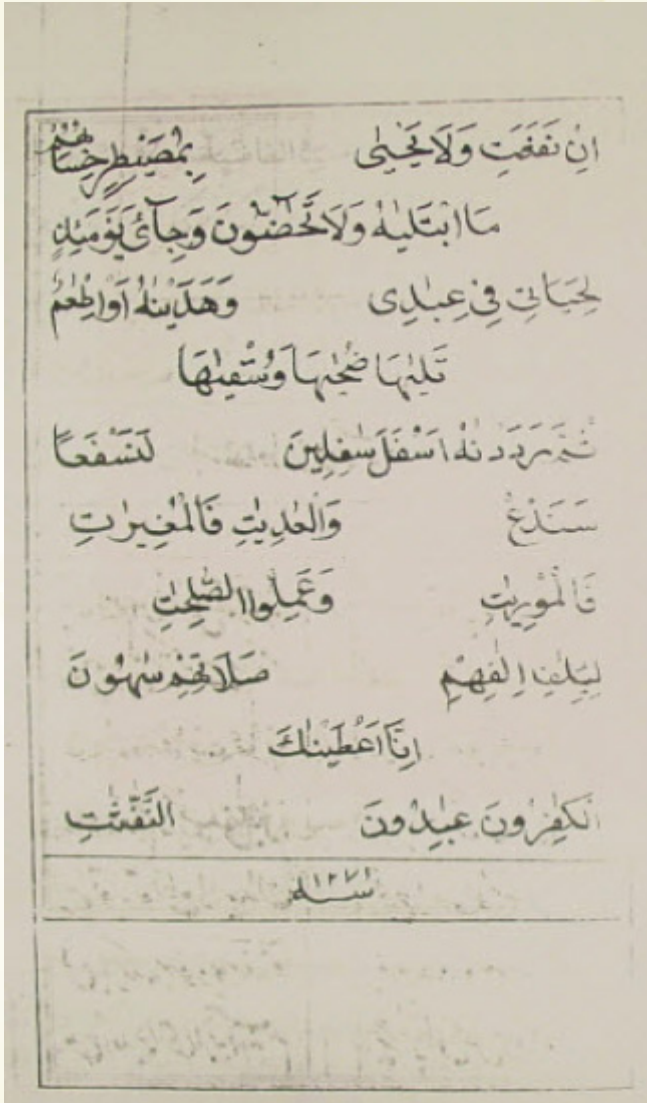 اِنْ نَفَعَتِ وَلَا يَحْيٰى بِمُصَيْطِرٍ حِسَابَهُمْ
مَا ابْتَلٰىهُ وَلَا تَحٰٓضُّوْنَ وَجِآئَ يَوْمَئِذٍ
لِحَيَاتِىْ فِىْ عِبٰدِى وَهَدَيْنٰهُ اَوْ اِطْعٰمٌ
تَلٰىهَا ضُحٰىهَا وَسُقْيٰهَا
ثُمَّ رَدَدْنٰهُ اَسْفَلَ سٰفِلِيْنَ لَنَسْفَعًا
سَنَدْعُ وَالْعٰدِيٰتِ فَالْمُغِيْرٰتِ
فَالْمُوْرِيٰتِ وَعَمِلُوا الصّٰلِحٰتِ
لِاِيْلٰفِ اٖلٰفِهِمْ صَلَاتِهِمْ سٰهُوْنَ
اِنَّا اَعْطَيْنٰكَ
الْكٰفِرُوْنَ عٰبِدُوْنَ النَّفّٰثٰتِ
سنه ١٢٧١